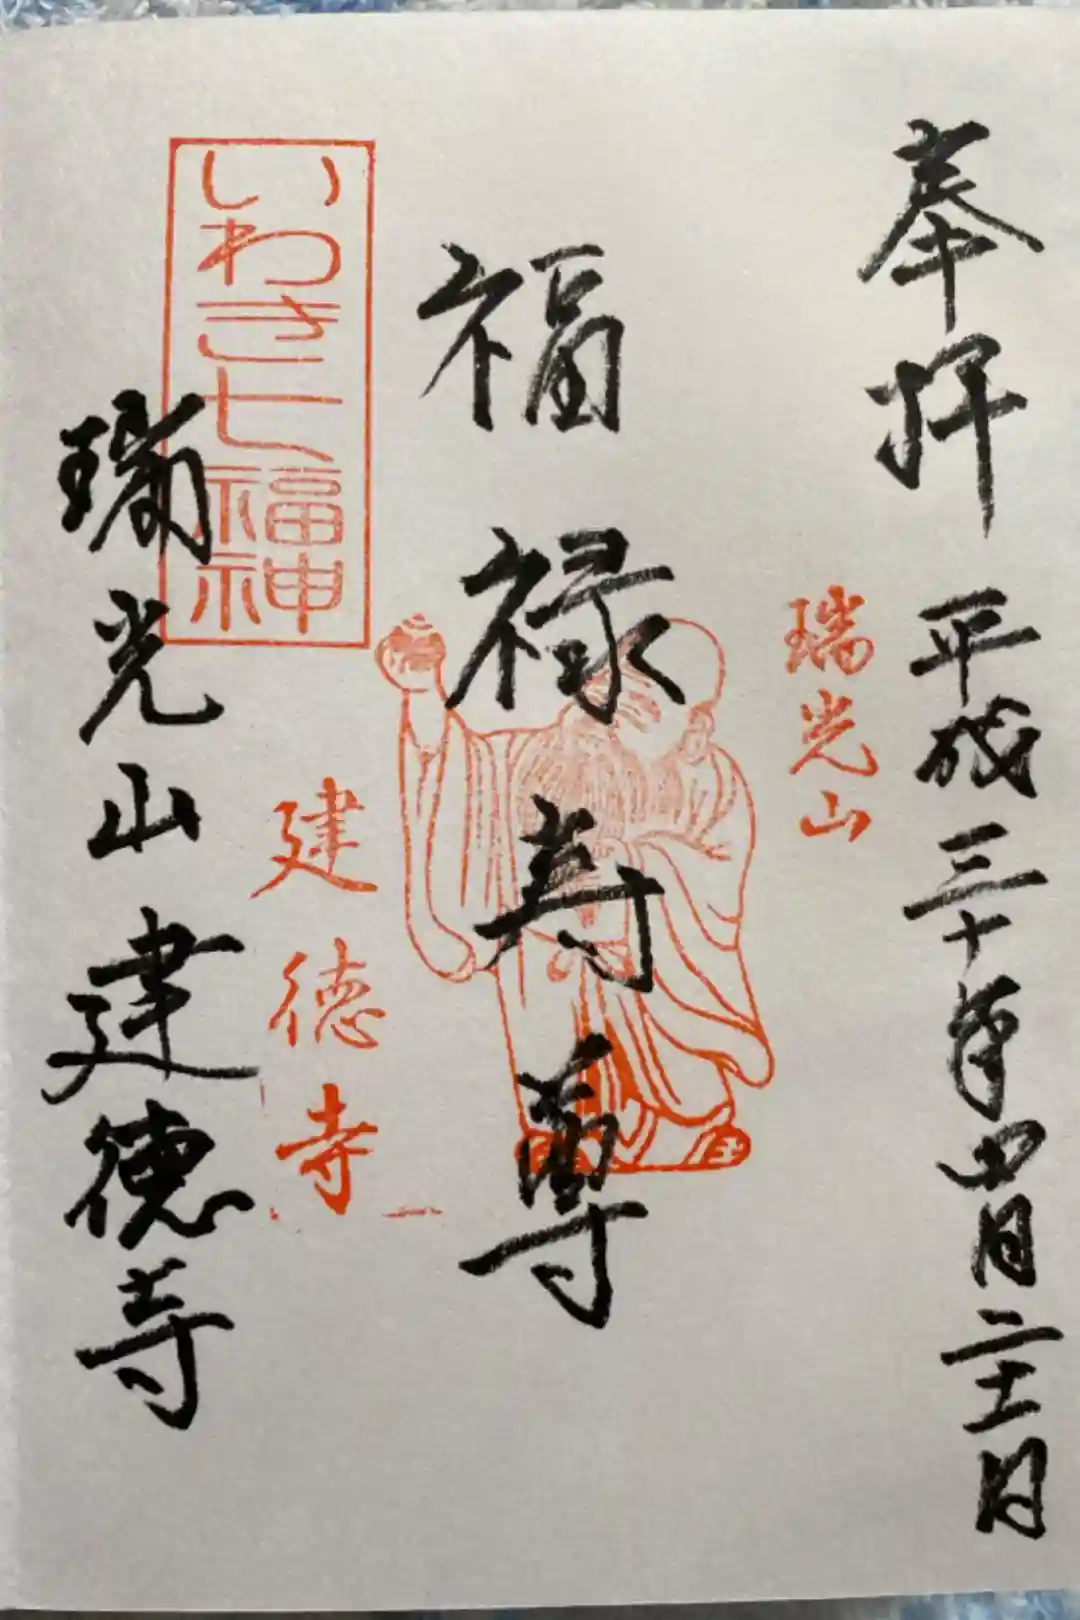 奉拝 平成三十年四月二十一日
瑞光山
福禄寿尊
いわき七福神
建徳寺
瑞光山建徳寺